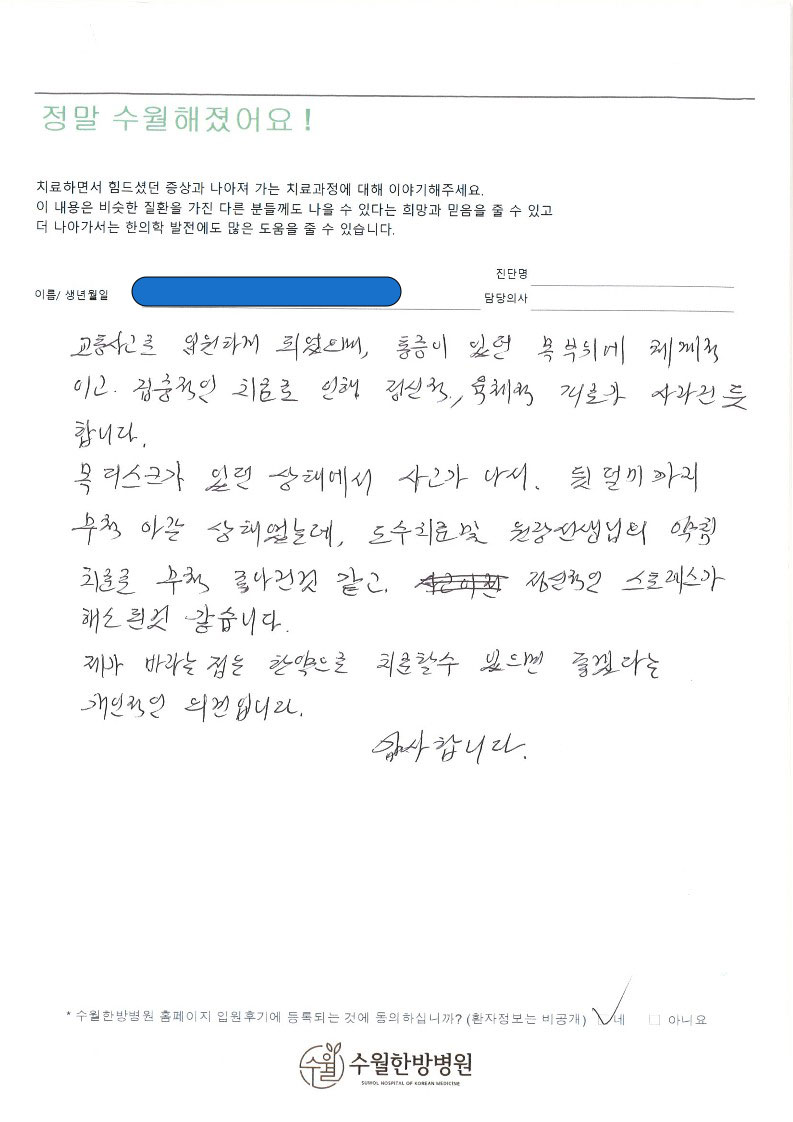 정말 수월해졌어요!
치료하면서 힘드셨던 증상과 나아져 가는 치료과정에 대해 이야기해주세요.
이 내용은 비슷한 질환을 가진 다른 분들께도 나을 수 있다는 희망과 믿음을 줄 수 있고
더 나아가서는 한의학 발전에도 많은 도움을 줄 수 있습니다.
이름/ 생년월일
진단명
담당의사
교통사고로 입원하게 되었으며, 통증이 있던 목 부위에 체계적
이고. 집중적인 치료로 인해 정신적, 육체적 피로가 사라진 듯
합니다.
목 디스크가 있던 상태에서 사고가 나서. 뒷덜미까지
무척 아픈 상태였는데, 도수치료 및 원장선생님의 약침
치료로 무척 좋아진것 같고. 정신적인 스트레스가
해소 된것 같습니다.
제가 바라는 점은 한약으로 치료할수 있으면 좋겠다는
개인적인 의견입니다.
감사합니다.
* 수월한방병원 홈페이지 입원후기에 등록되는 것에 동의하십니까? (환자정보는 비공개) 네 □ 아니요
수월 수월한방병원
SUWOL HOSPITAL OF KOREAN MEDICINE